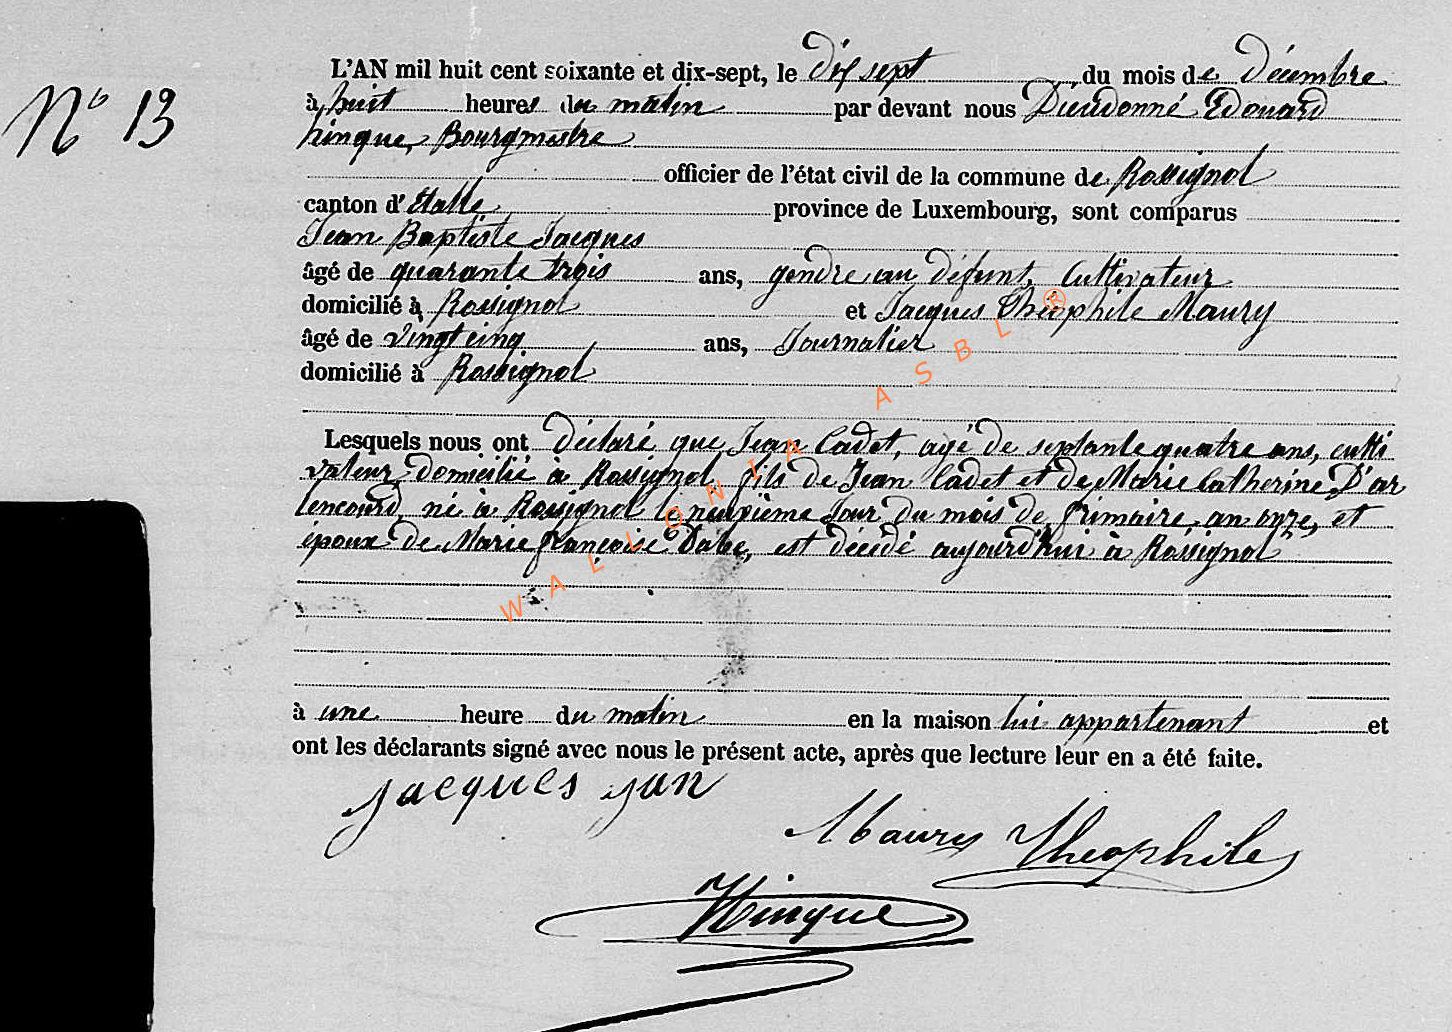 N° 13
L'AN mil huit cent soixante et dix-sept, le dix sept du mois de Décembre
à huit heures du matin par devant nous Dieudonné Edouard
hinque, Bourgmestre
officier de l'état civil de la commune de Rossignol
canton d'Etalle province de Luxembourg, sont comparus
Jean Baptiste Jacques
âgé de quarante trois ans, gendre au défunt, Cultivateur
domicilié à Rossignol et Jacques Théophile Maury
âgé de vingt cinq ans, Journalier
domicilié à Rossignol
Lesquels nous ont déclaré que Jean Cadet, agé de septante quatre ans, culti
vateur, domicilié à Rossignol, fils de Jean Cadet et de Marie Catherine D'ar
lencourd, né à Rossignol le neuvième jour du mois de frimaire, an onze, et
époux de Marie françoise, est décédé aujourd'hui à Rossignol
à une heure du matin en la maison lui appartenant et
ont les déclarants signé avec nous le présent acte, après que lecture leur en a été faite.
Jacques jan
Maury Theophile
Hinque
WALLONIA ASBL ®